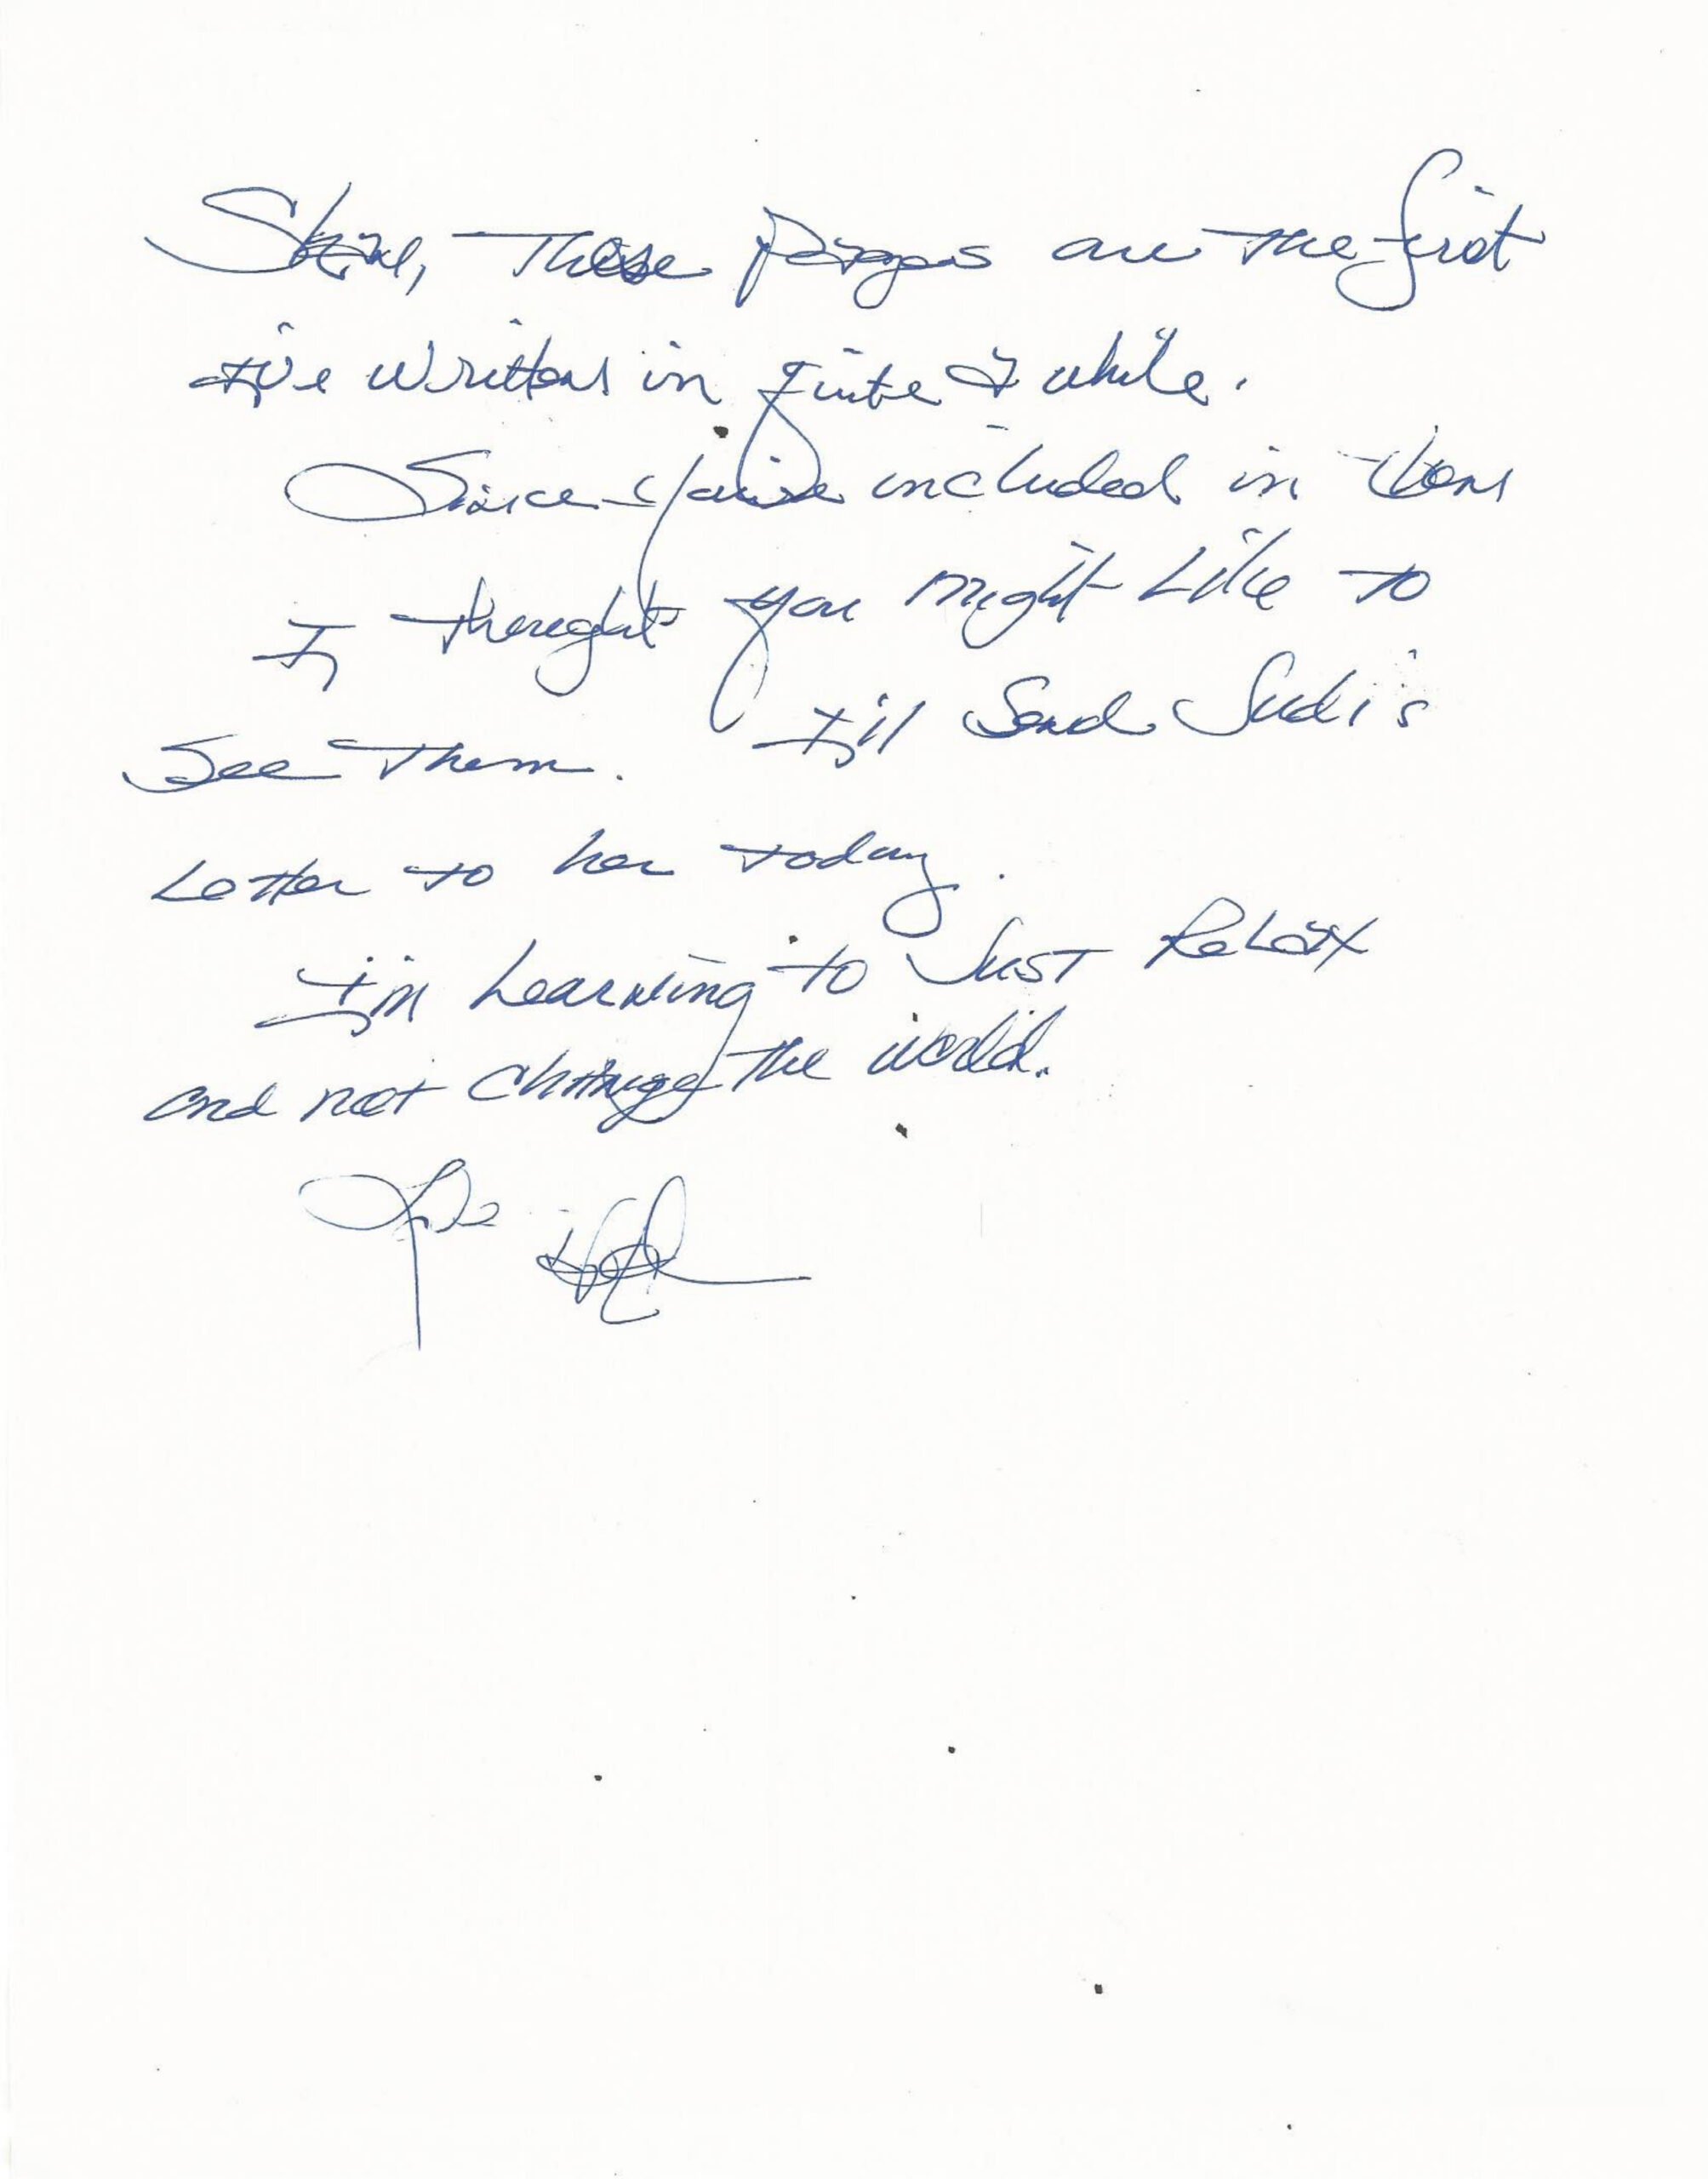 These pages are the first
I've written in quite a while.
Since you're included in them
I thought you might like to
see them. I'll send Judi's
Letter to her today.
I'm Learning to Just ReLax
and not change the world.